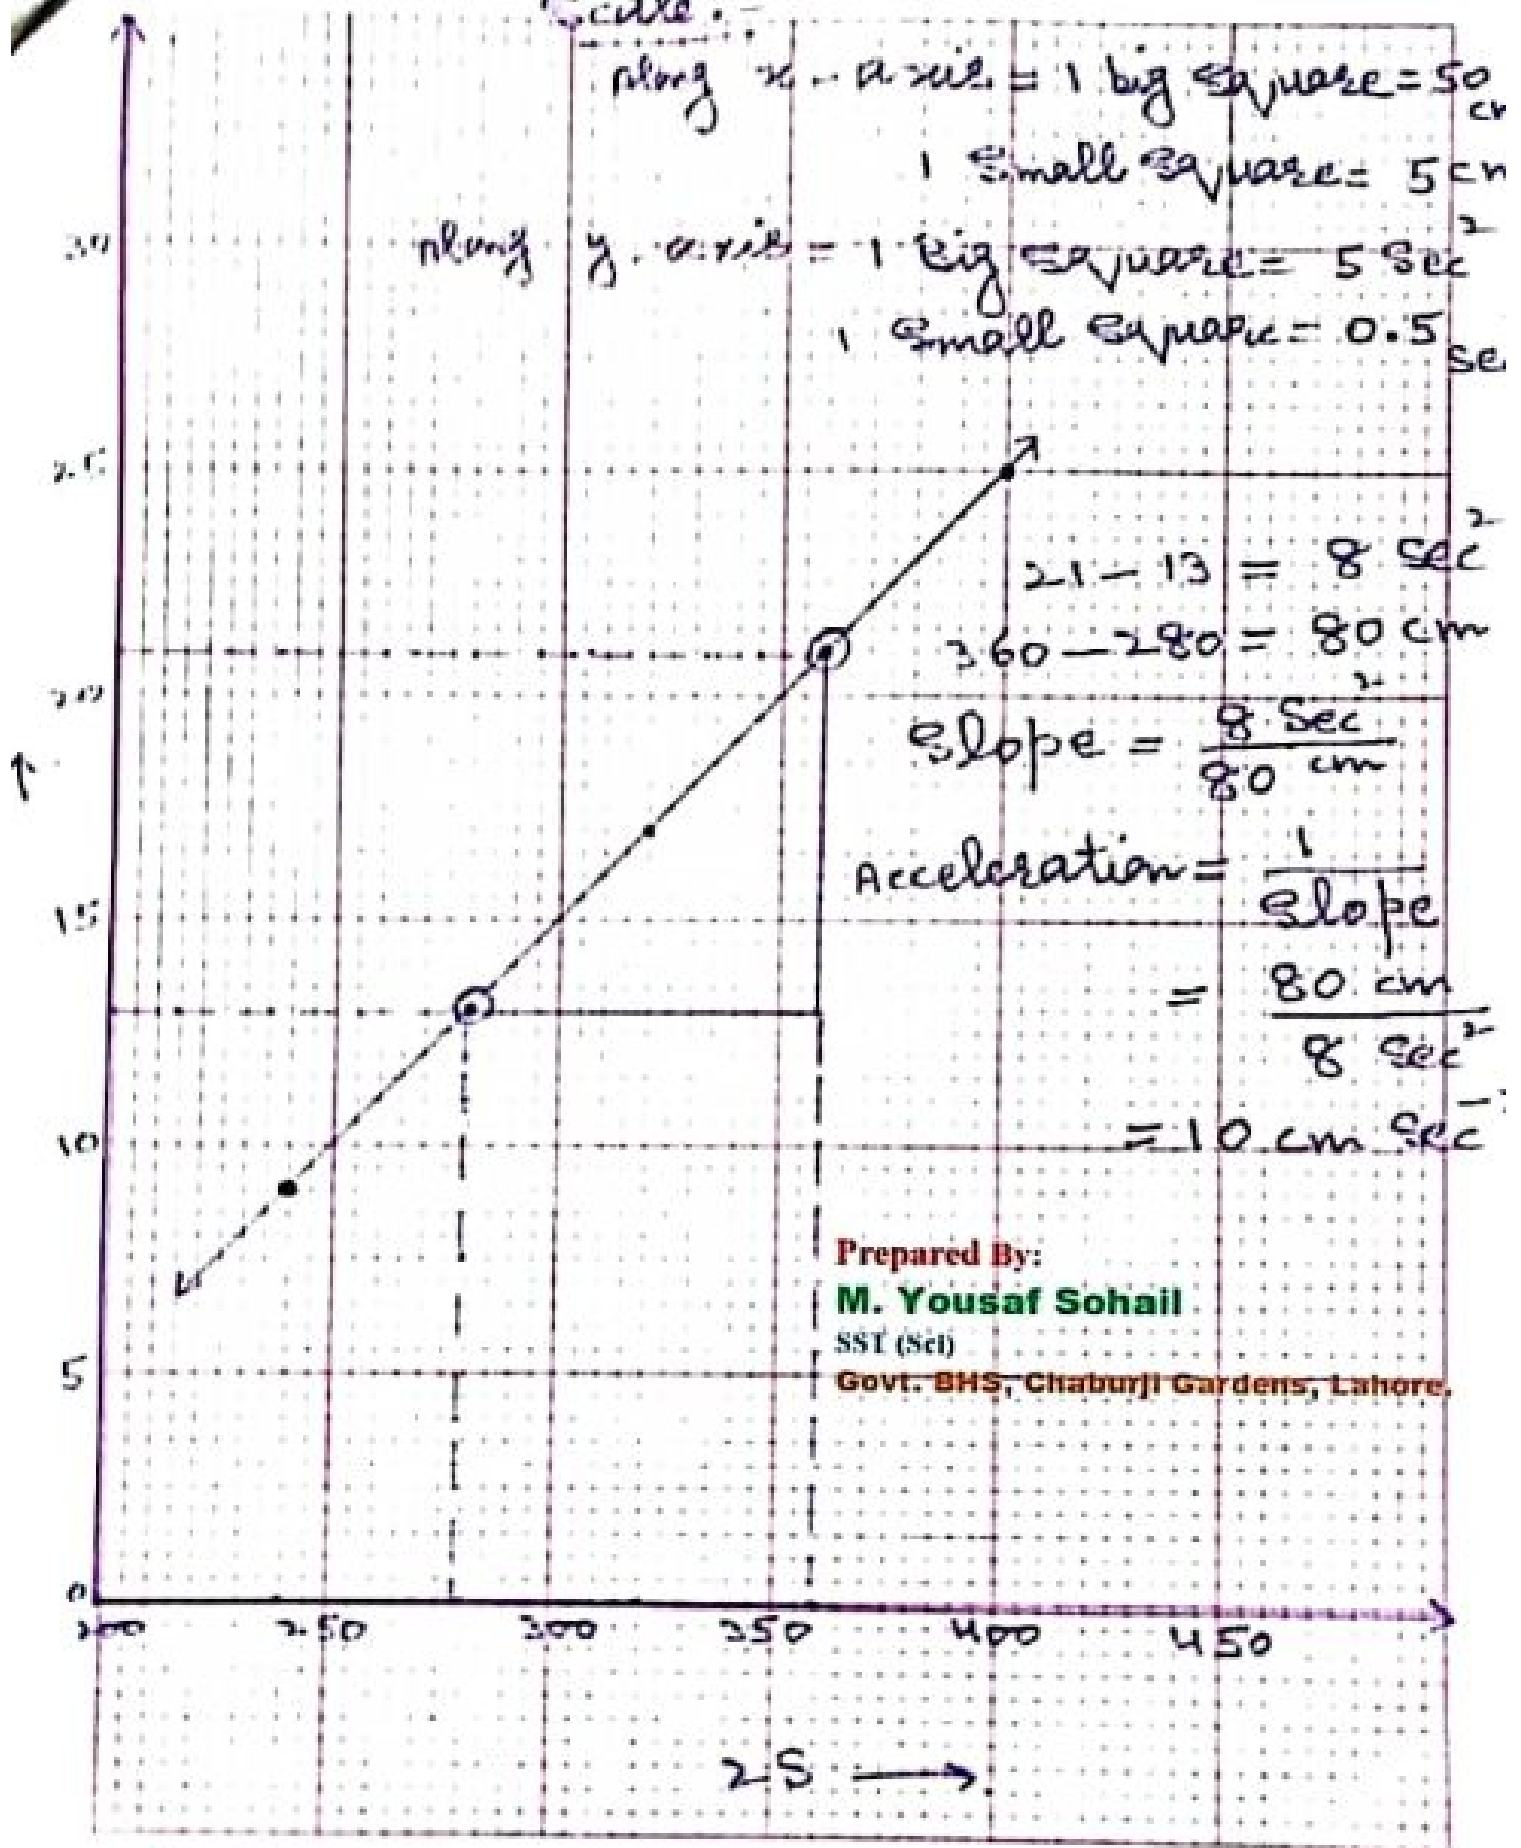 Scale :-
Along x-axis = 1 big square = 50 cm
1 Small square = 5 cm
30
Along y-axis = 1 big square = 5 Sec²
1 Small square = 0.5 Se
25
21 - 13 = 8 Sec²
360 - 280 = 80 cm
20
Slope = 8 Sec² / 80 cm
↑
Acceleration = 1 / Slope
15
= 80 cm / 8 Sec²
10
= 10 cm Sec⁻
Prepared By:
M. Yousaf Sohail
SST (Sci)
5
Govt. BHS, Chaburji Gardens, Lahore.
0
200 250 300 350 400 450
2S →